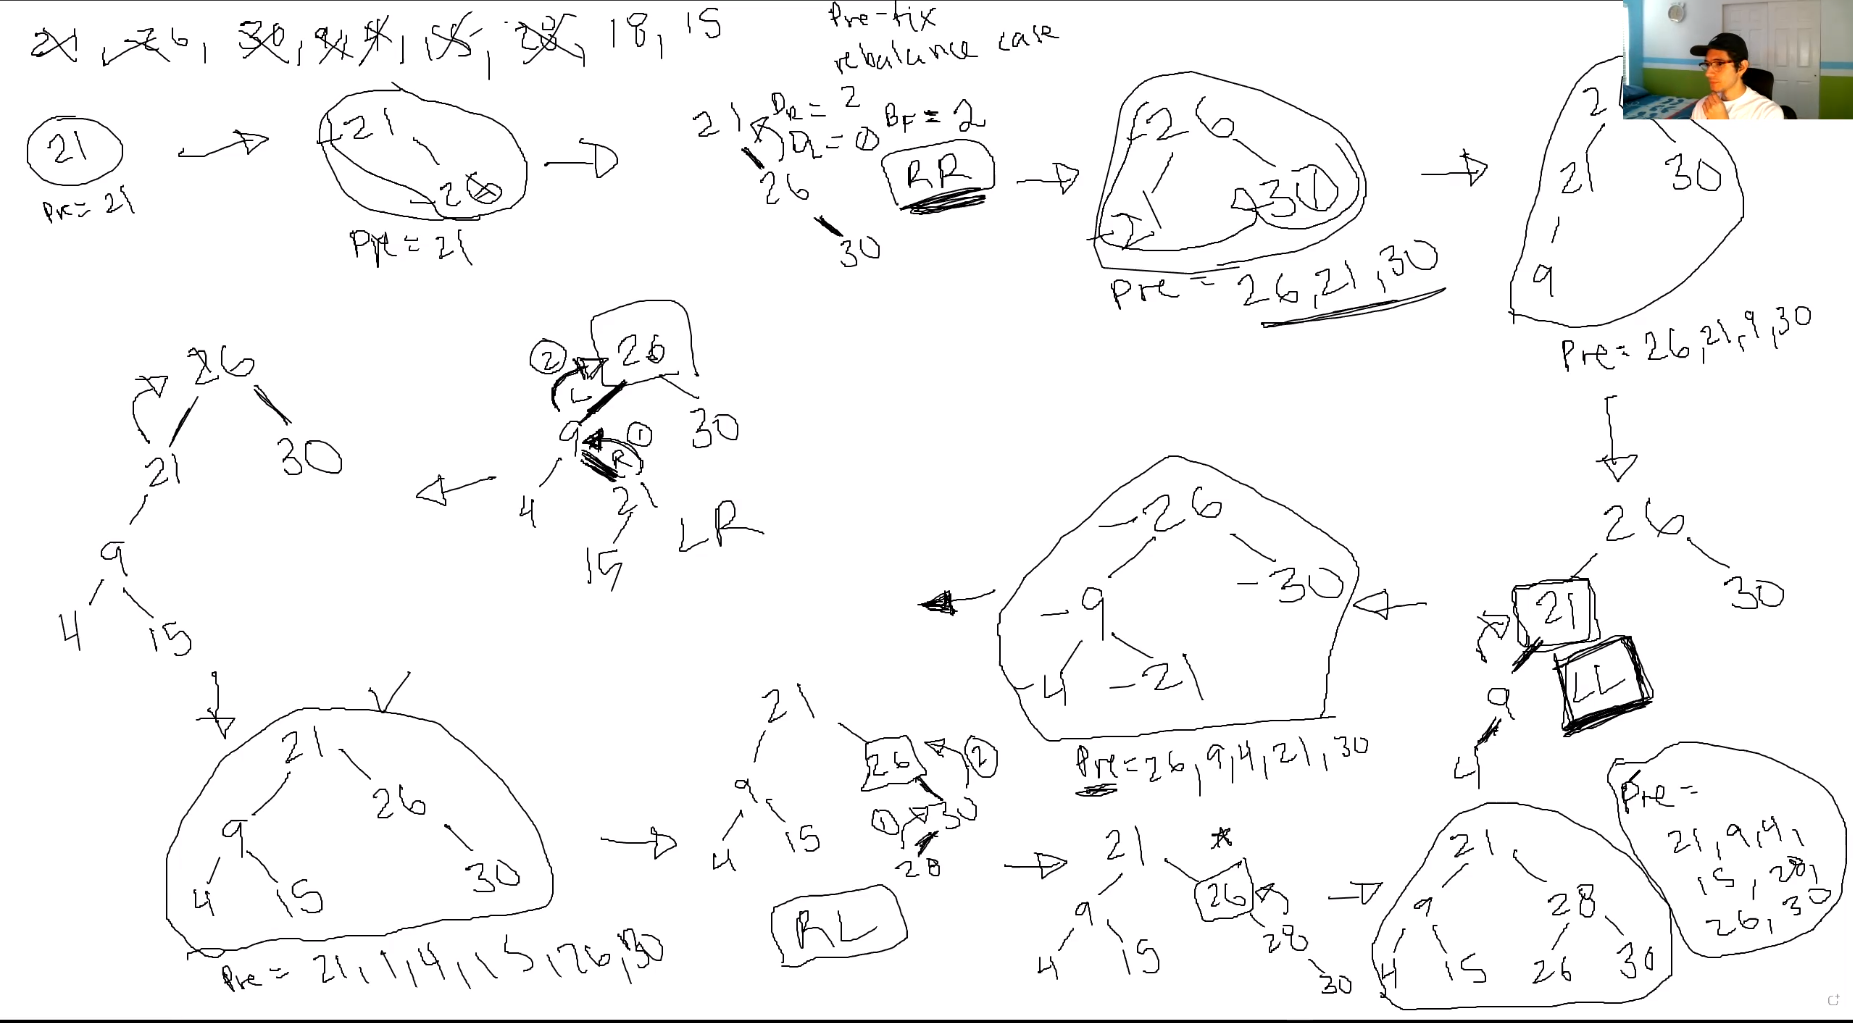 21, 26, 30, 9, 4, 15, 28, 18, 15
Pre-fix
rebalance case
21
Pre = 21
21
26
Pre = 21
21
DR = 2
DL = 0
BF = 2
26
30
RR
26
21
30
Pre = 26, 21, 30
2
21
30
9
Pre = 26, 21, 9, 30
26
21
30
9
4
LL
26
9
30
4
21
Pre = 26, 9, 4, 21, 30
2
26
L
9
1
30
R
4
21
LR
15
26
21
30
9
4
15
21
9
26
4
15
30
Pre = 21, 9, 4, 15, 26, 30
21
26
2
9
1
30
4
15
28
RL
21
*
26
9
28
4
15
30
21
9
28
4
15
26
30
Pre =
21, 9, 4,
15, 28,
26, 30